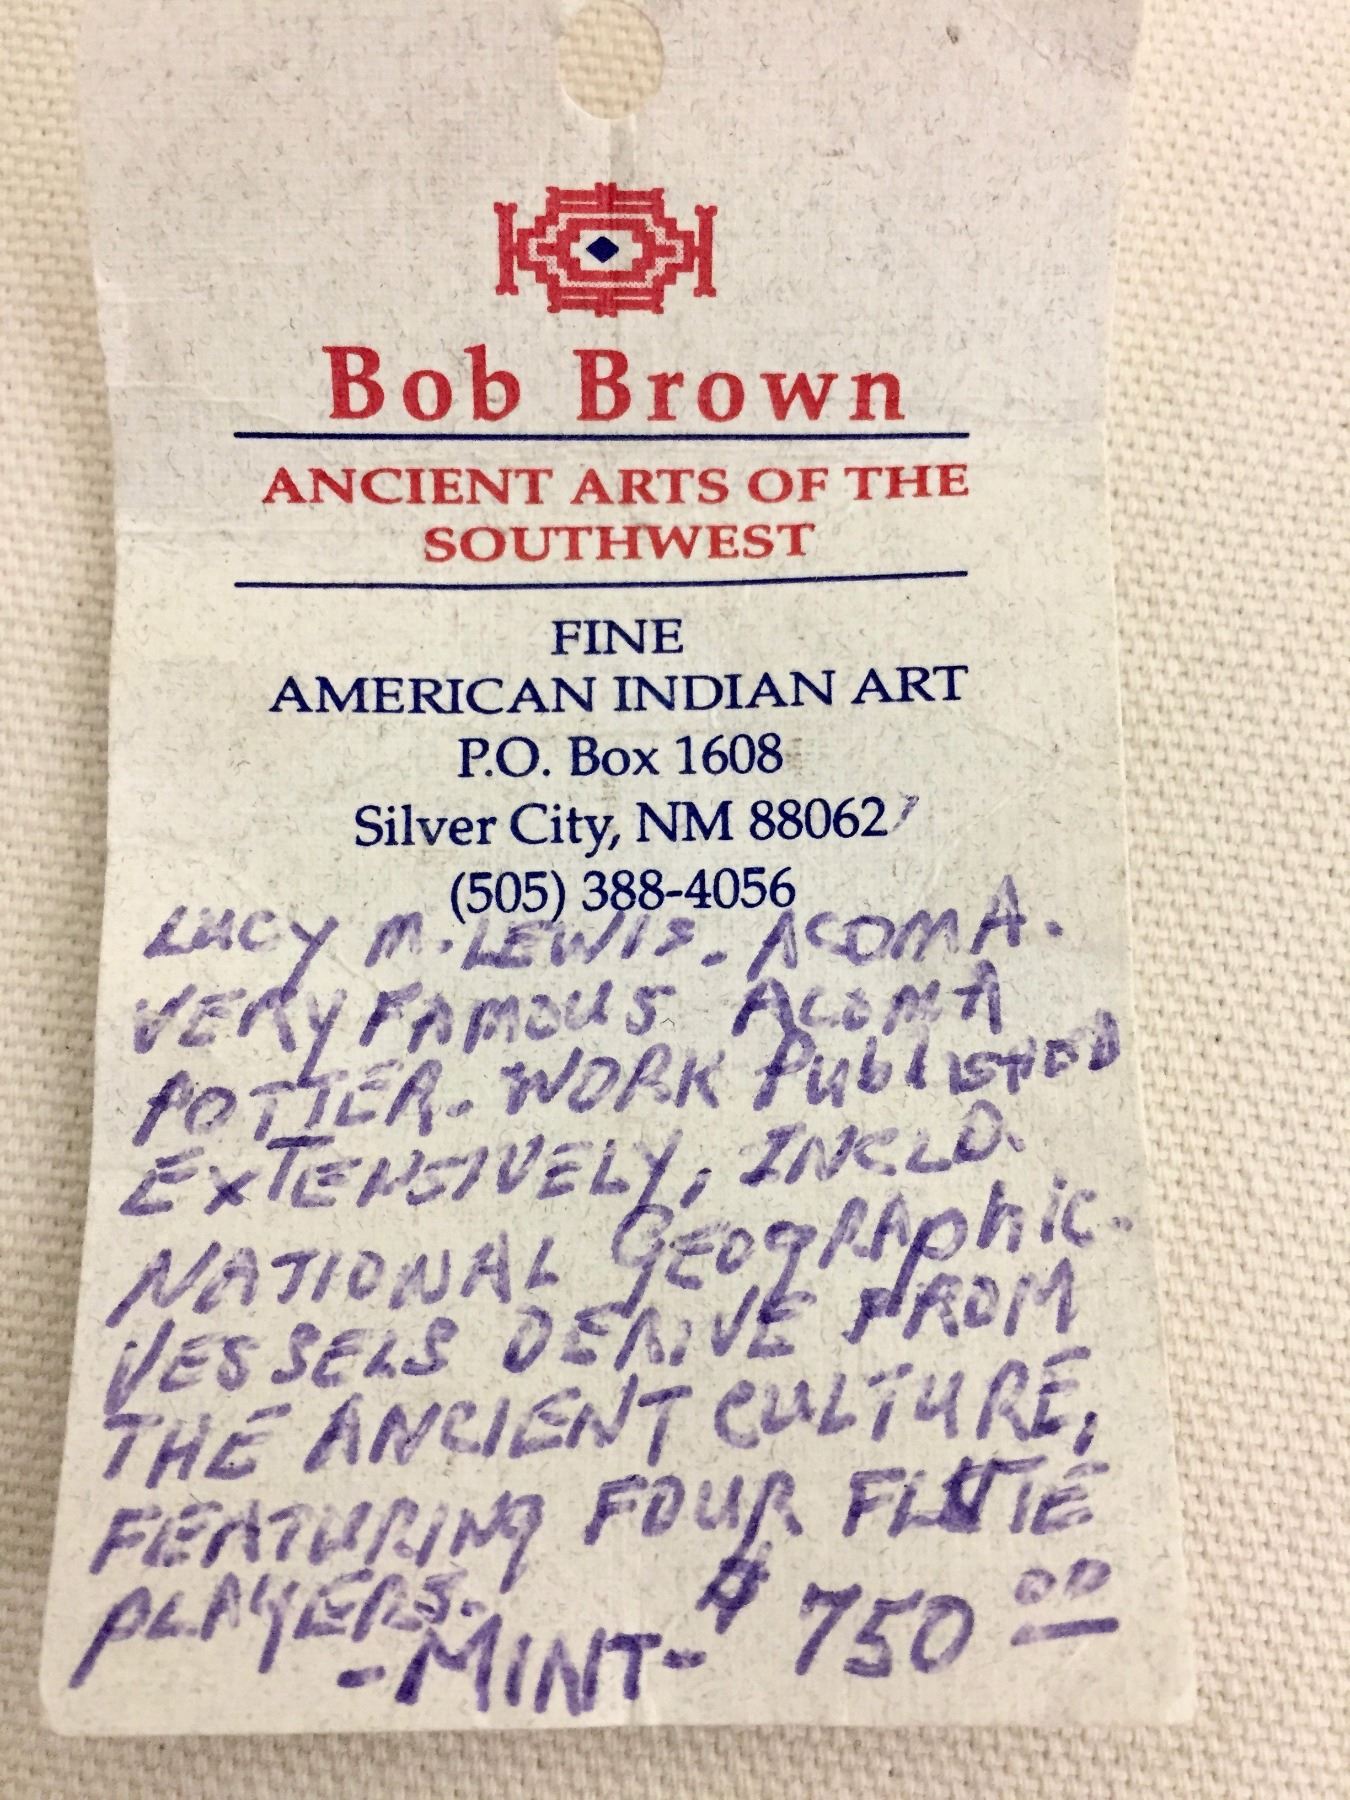 Bob Brown
ANCIENT ARTS OF THE
SOUTHWEST
FINE
AMERICAN INDIAN ART
P.O. Box 1608
Silver City, NM 88062
(505) 388-4056
LUCY M. LEWIS. ACOMA.
VERY FAMOUS ACOMA
POTTER. WORK PUblISHED
EXTENSIVELY, INCLD.
NATIONAL GEOGRAPhic.
VESSELS DERIVE FROM
THE ANCIENT CULTURE,
FEATURING FOUR FLUTE
PLAYERS.
-MINT- $750 00